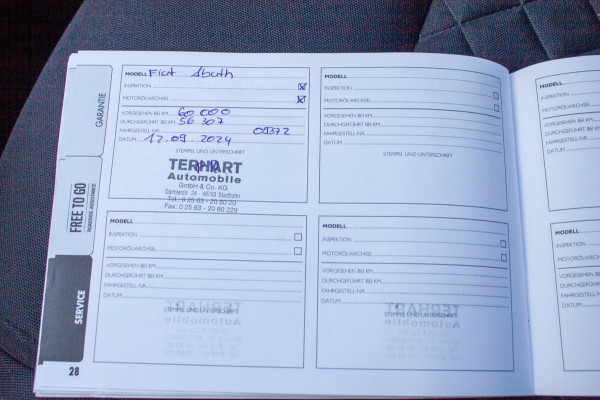 GARANTIE
FREE TO GO
ROADSIDE ASSISTANCE
SERVICE
MODELL Fiat Abath
INSPEKTION
MOTORÖLWECHSEL
VORGESEHEN BEI KM 60 000
DURCHGEFÜHRT BEI KM 56 307
FAHRGESTELL-NR. 09372
DATUM 12.09.2024
STEMPEL UND UNTERSCHRIFT
TERHART
Automobile
GmbH & Co. KG
Daimlerstr. 24 · 48703 Stadtlohn
Tel.: 0 25 63 - 20 80 20
Fax: 0 25 63 - 20 80 229
MODELL
INSPEKTION
MOTORÖLWECHSEL
VORGESEHEN BEI KM
DURCHGEFÜHRT BEI KM
FAHRGESTELL-NR.
DATUM
STEMPEL UND UNTERSCHRIFT
MODELL
INSPEKTION
MOTORÖLWECHSEL
VORGESEHEN BEI KM
DURCHGEFÜHRT BEI KM
FAHRGESTELL-NR.
DATUM
STEMPEL UND UNTERSCHRIFT
MODELL
INSPEKTION
MOTORÖLWECHSEL
VORGESEHEN BEI KM
DURCHGEFÜHRT BEI KM
FAHRGESTELL-NR.
DATUM
STEMPEL UND UNTERSCHRIFT
28
MODELL
INSPEKTION
MOTORÖLWECH
VORGESEHEN BEI
DURCHGEFÜHRT
FAHRGESTELL-N
DATUM
MODELL
INSPEKTION
MOTORÖLWE
VORGESEHEN
DURCHGEFÜH
FAHRGESTEL
DATUM